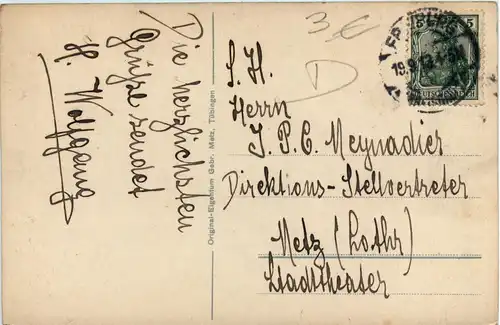 Die herzlichsten
Grüße sendet
H. Wolfgang
Original-Eigentum Gebr. Metz, Tübingen
3€
D
S. H.
Herrn
J. P. C. Meynadier
Direktions-Stellvertreter
Metz (Lothr)
Stadttheater
5